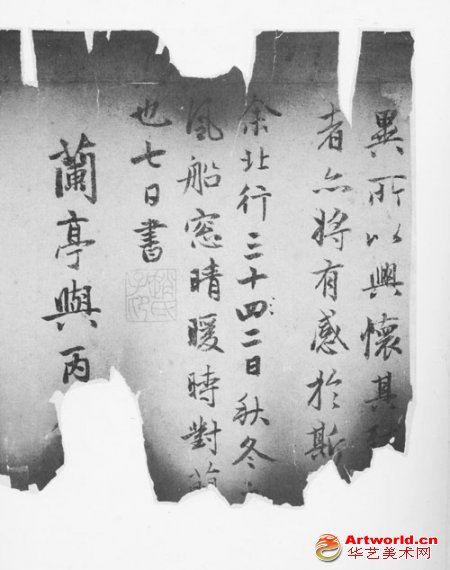 異所以興懷其
者亦將有感於斯
余北行三十四二日秋冬
風船窓晴暖時對
也七日書
趙氏子昂
蘭亭與丙
Artworld.cn
华艺美术网